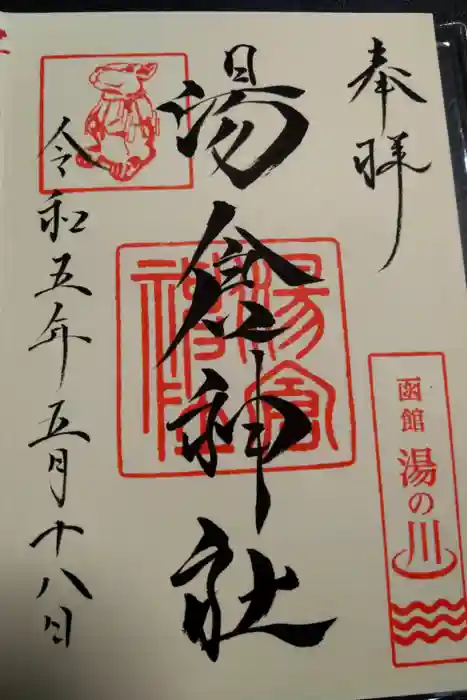 奉拝
函館 湯の川
湯倉神社
湯倉神社
令和五年五月十八日